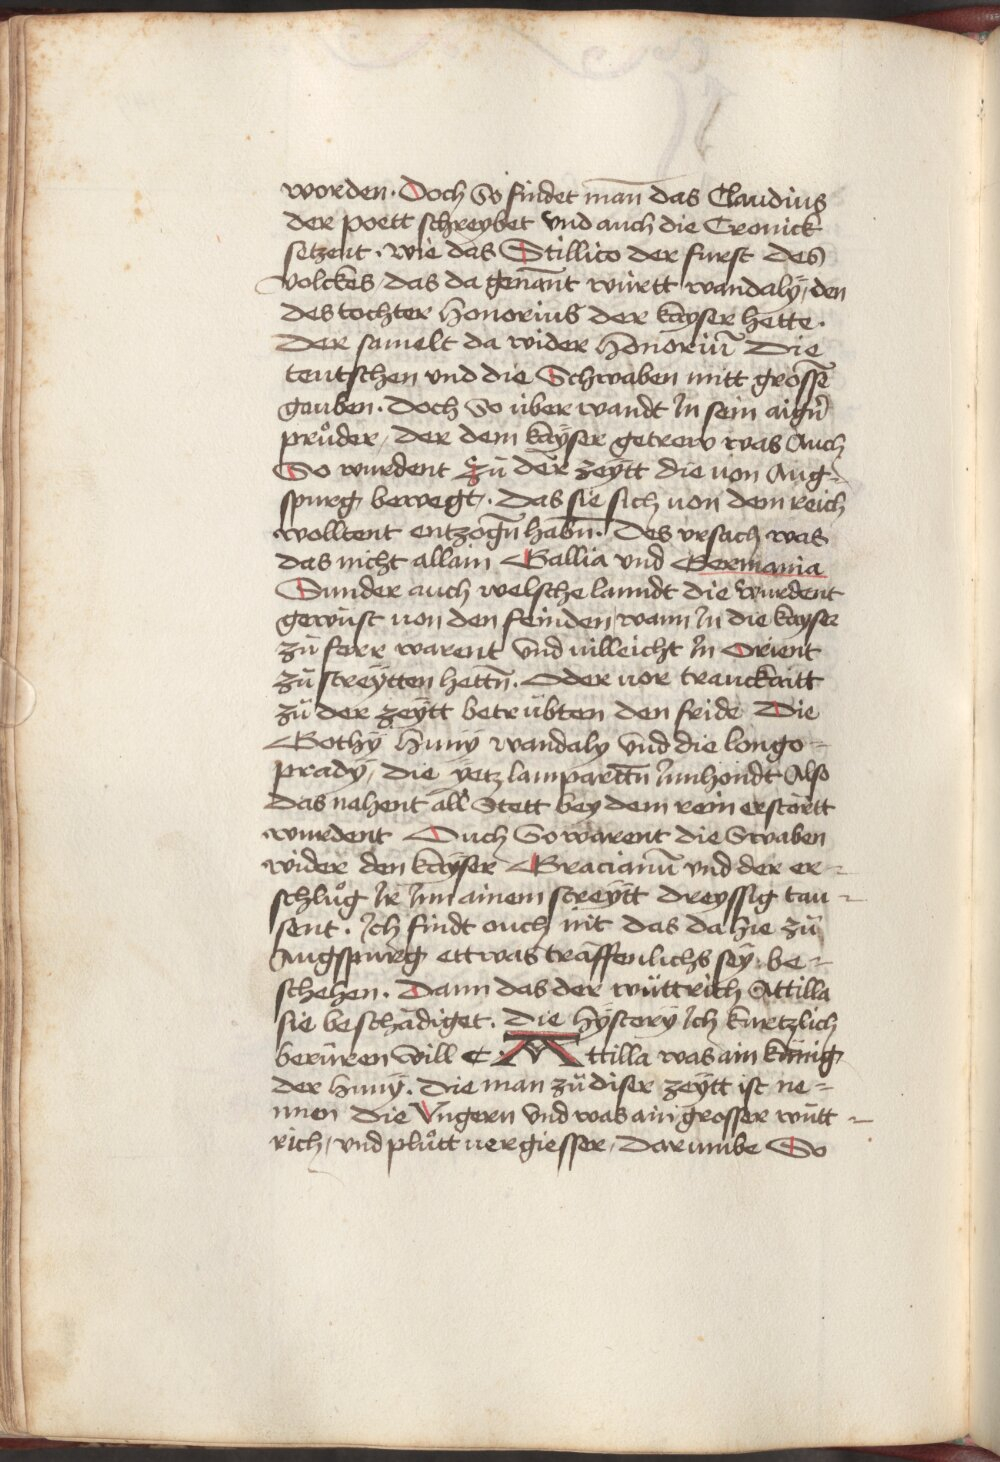 worden. Doch So findet man̄ das Claudius
der poett schreybet vnd auch die Cronick
setzent. wie das Stillico der furst des
volckes das da genan̄t wirtt wandalÿ, den
des tochter Honorius der kayser hette.
Der samelt da wider Honoriū Die
teutschen vnd die Schwaben mitt grosse͞
gauben. Doch So über wandt In sein aign̄
průder, der dem kayser getrew was Auch
So wurdent zů der zeÿtt die von Aug-
spurg bewegt. Das sie sich von dem reich
wolltent entzogn̄ habn̄. Des vrsach was
das nicht allain Gallia vnd Germania
Sunder auch welsche lanndt die wurdent
gewüst von den feinden, wann In die kayser
zů ferr warent vnd villeicht In Orient
zů streÿtten hettn̄. Oder vor tranckaitt
zů der zeÿtt betrübten den fride Die
Gothÿ Hunÿ wandaly vnd die longo-
pradÿ, die ÿetz lampartn̄ Innhondt Also
das nahent all Stett bey dem rein erstörtt
wurdent Ouch So warent die Swaben
wider den kayser Gracianū vnd der er-
schlůg Ir Inn ainem streÿtt dreyssig tau-
sent. Ich findt ouch nit das da hie zů
Augspurg ettwas träffenlichs seÿ be-
schehen. Dann das der wüttrich Attilla
sie beschädiget. Die Hÿstory Ich kurtzlich
berüren will Attilla was ain künig
der Hunÿ. Die man zů diser zeÿtt ist ne-
nnen Die Vngern vnd was ain grosser wütt-
rich, vnd plůtt vergiesser, Darumbe So